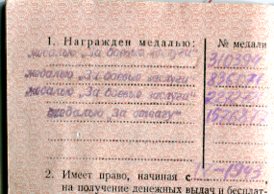 1. Награжден медалью: № медали
медалью "За боевые заслуги" 310394
медалью "За боевые заслуги"
медалью "За боевые заслуги"
медалью "За отвагу"
2. Имеет право, начиная с
на получение денежных выдач и бесплат-